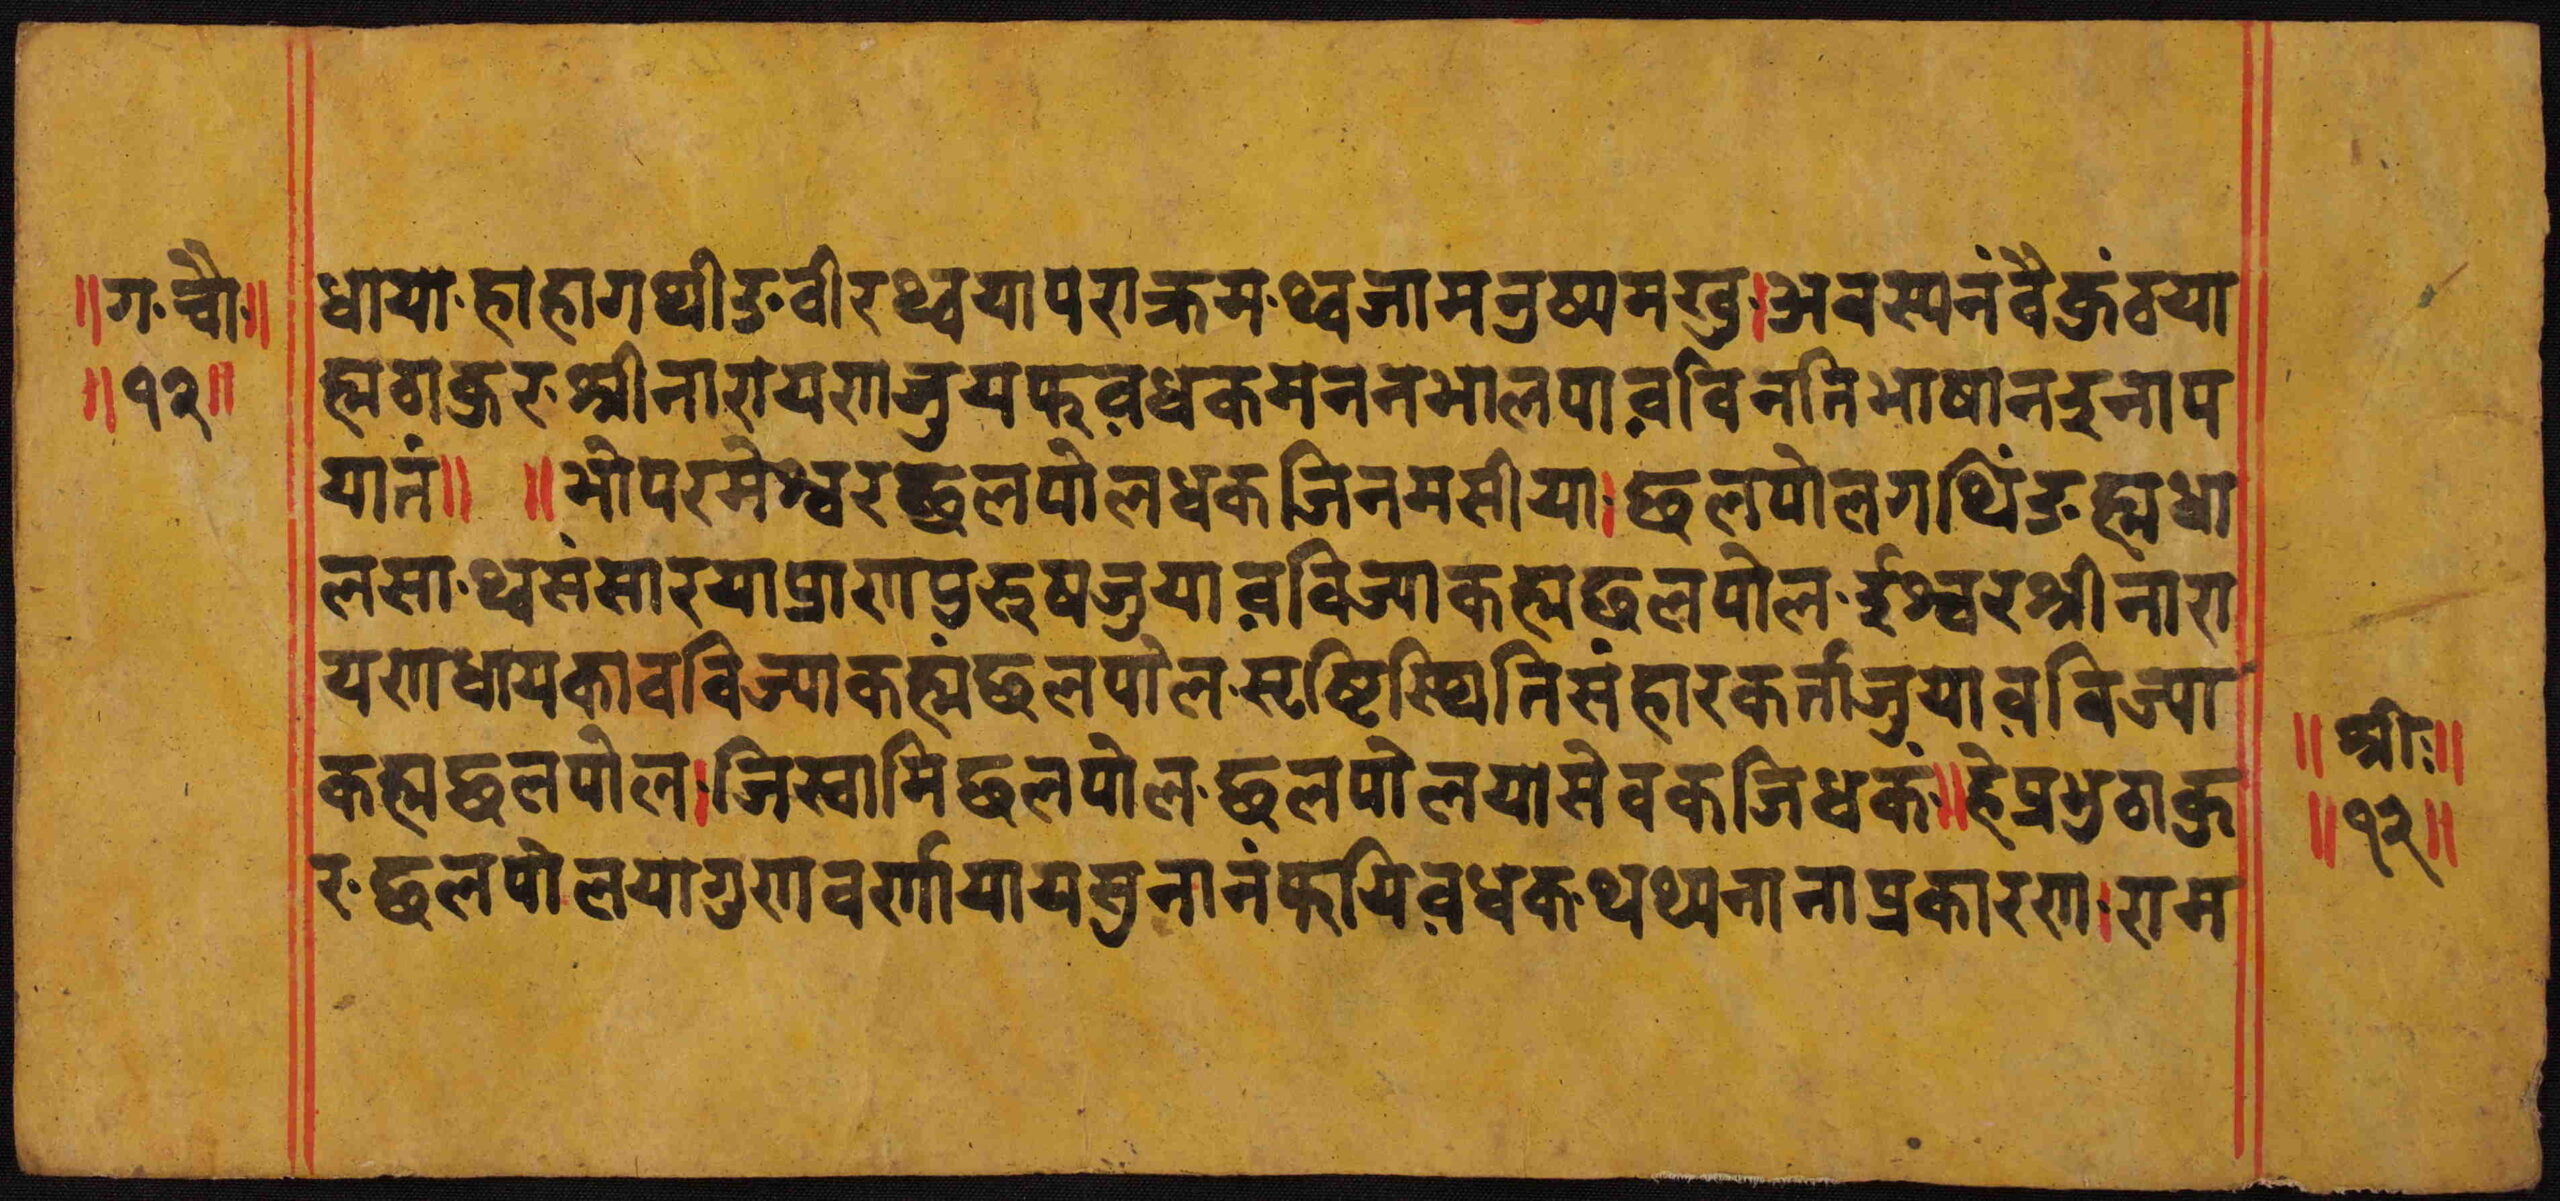 ॥ग·चौ·॥ धाया·हाहागथीङवीरथ्वयापराक्रम·थ्वजामनुष्यमखु।अवस्यनंवैकुंठया
॥१२॥ ह्मठाकुर·श्रीनारायणजुयफुव़धकमननभालपाव़विनतिभाषानइनाप
यातं॥ ॥भोपरमेश्वरछलपोलधकजिनमसीया।छलपोलगथिंङह्मधा
लसा·थ्वसंसारयाप्राणपुरुषजुयाव़विज्याकह्मछलपोल·ईश्वरश्रीनारा
यणधायकावविज्याकह्मंछलपोल·सृष्टिस्थितिसंहारकर्त्ताजुयाव़विज्या
कह्मछलपोल।जिस्वामिछलपोल·छलपोलयासेवकजिधकं॥हेप्रभुठाकु
र·छलपोलयागुणवर्णायायसुनानंफुयिव़धक·थथ्यनानाप्रकारण।राम
॥श्रीः॥
॥१२॥